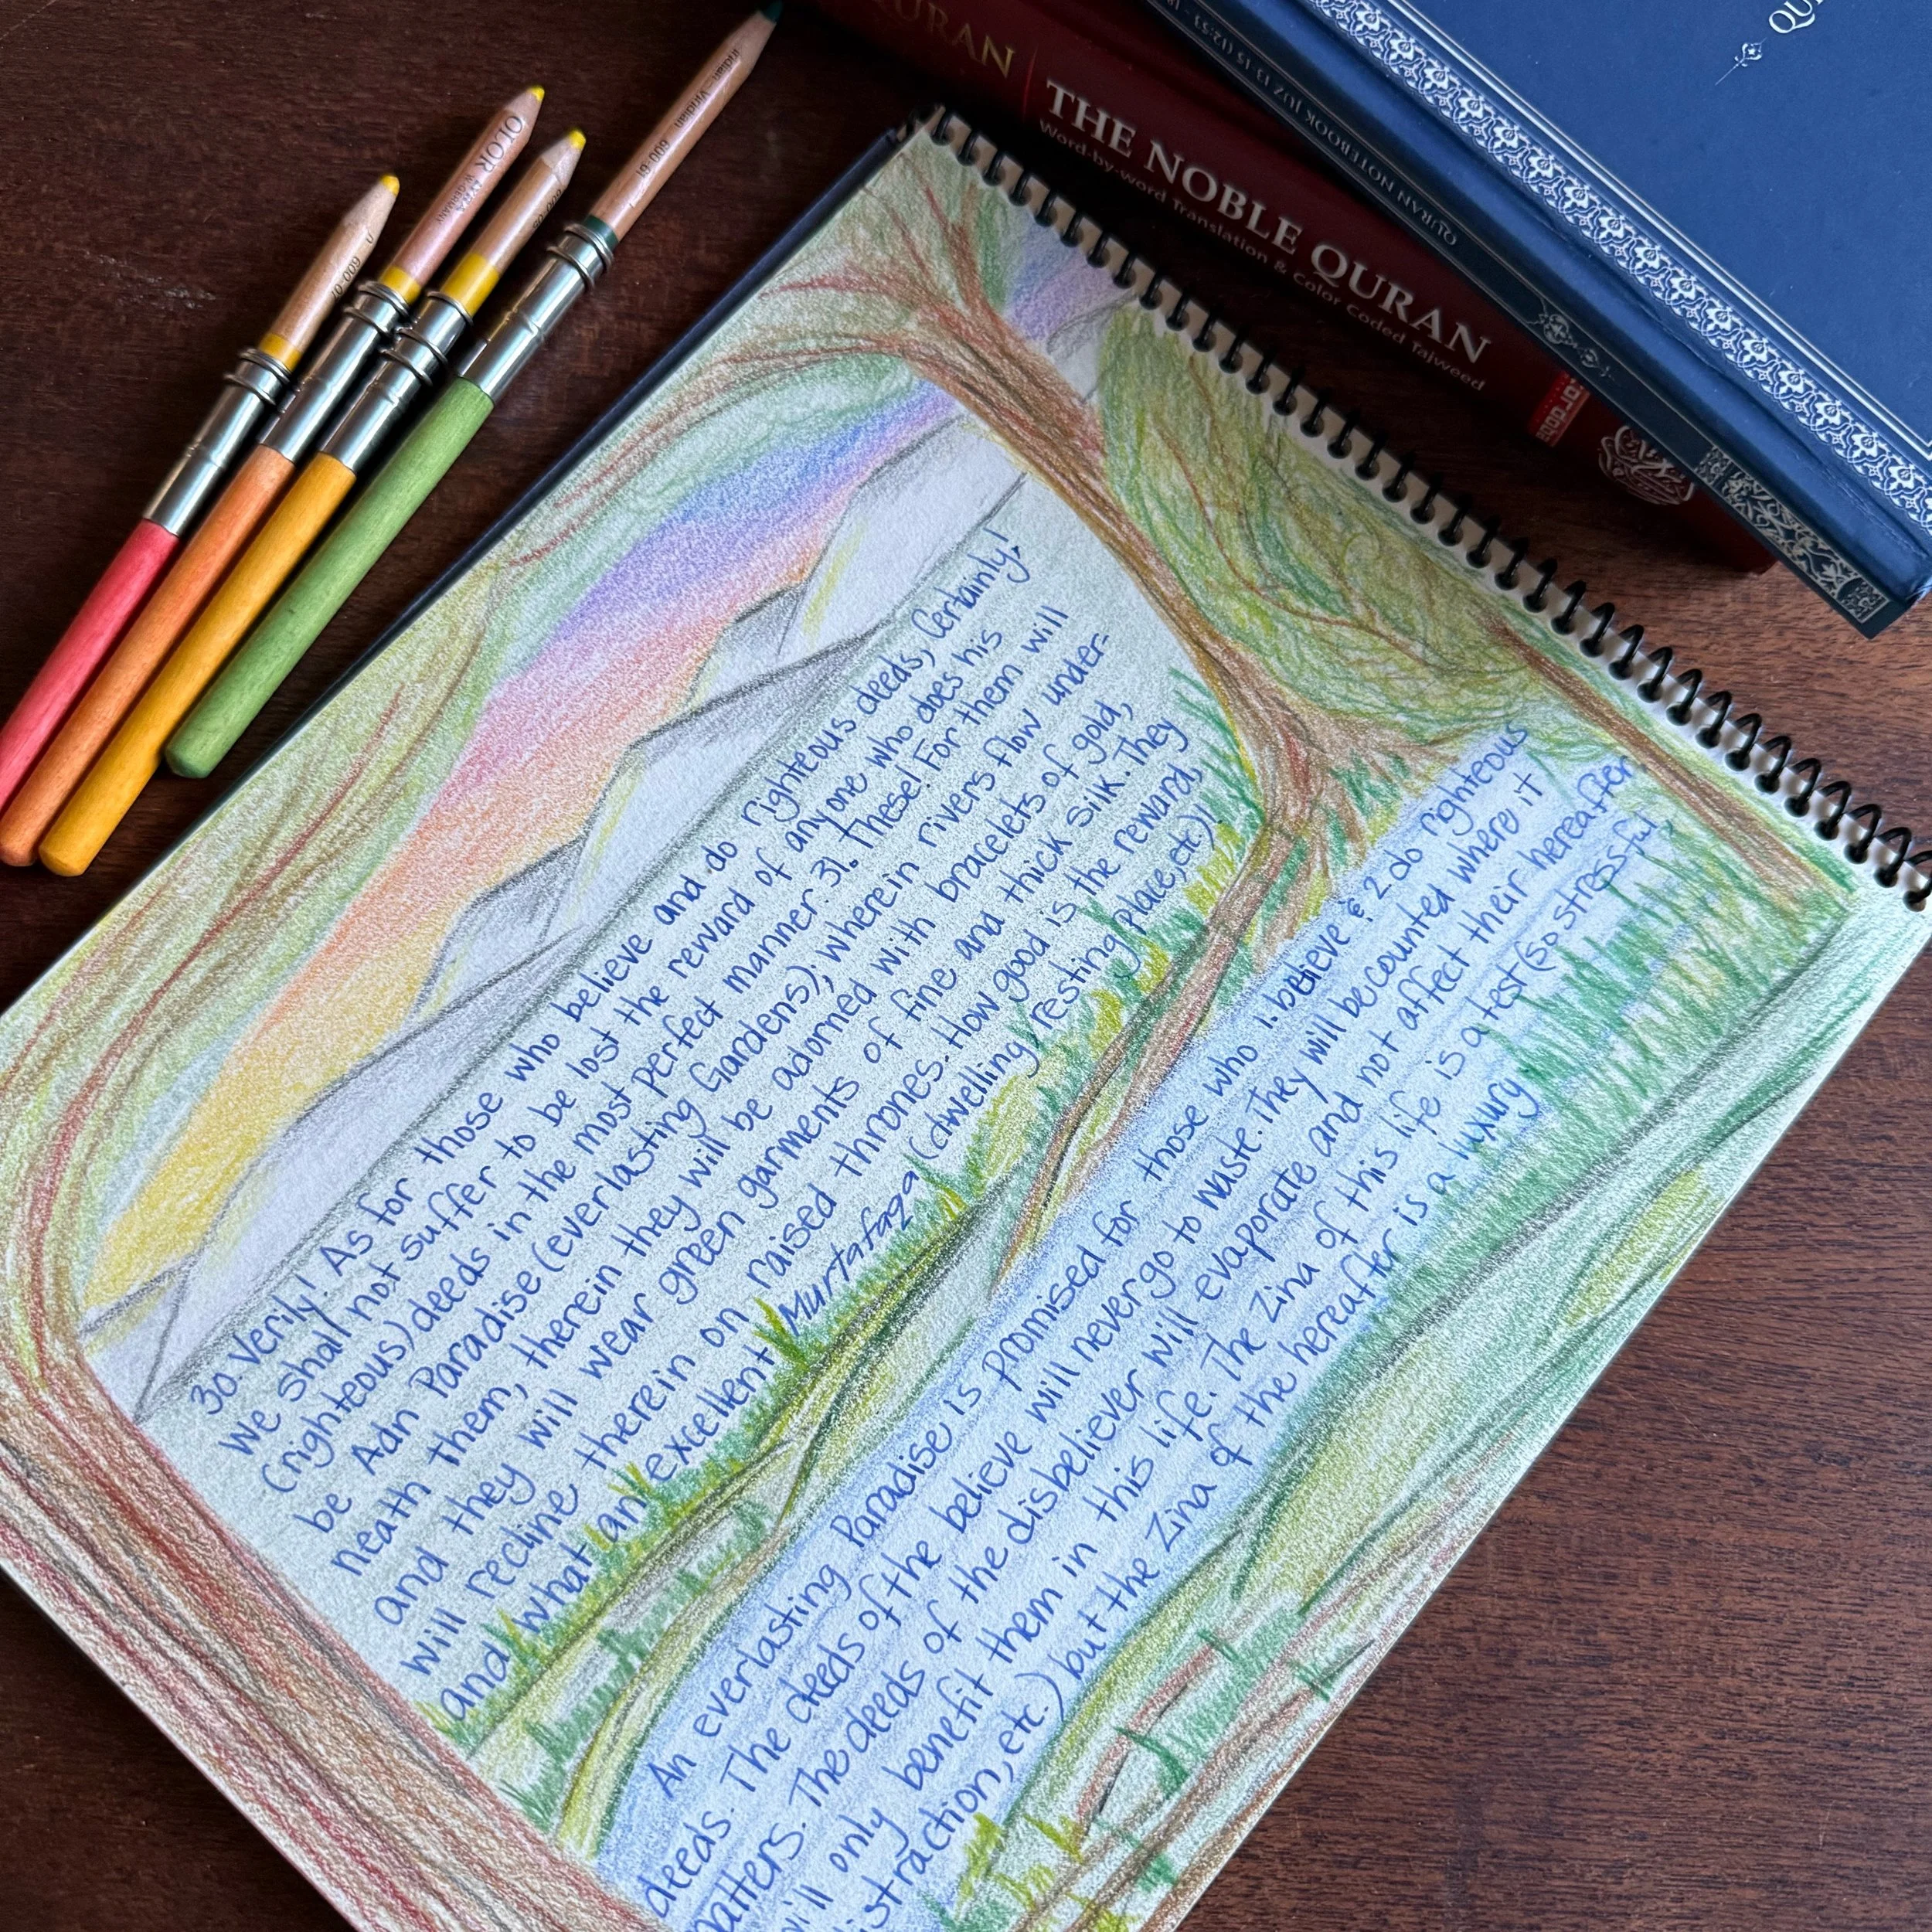 QURAN
THE NOBLE QURAN
Word-by-word Translation & Color Coded Tajweed
QURAN NOTEBOOK JUZ 13-15 (12:53 -
30. Verily! As for those who believe and do righteous deeds, Certainly!
We shall not suffer to be lost the reward of anyone who does his
(righteous) deeds in the most perfect manner. 31. These! For them will
be Adn Paradise (everlasting Gardens); wherein rivers flow under-
neath them, therein they will be adorned with bracelets of gold,
and they will wear green garments of fine and thick silk. They
will recline therein on raised thrones. How good is the reward,
and what an excellent Murtafaqa (dwelling, resting place, etc.)!
An everlasting Paradise is promised for those who 1. believe & 2 do righteous
deeds. The deeds of the believe will never go to waste. They will be counted where it
matters. The deeds of the disbeliever will evaporate and not affect their hereafter.
will only benefit them in this life. The Zina of this life is a test (so stressful,
distraction, etc.) but the Zina of the hereafter is a luxury
viridian 600-61
600-09
600-01